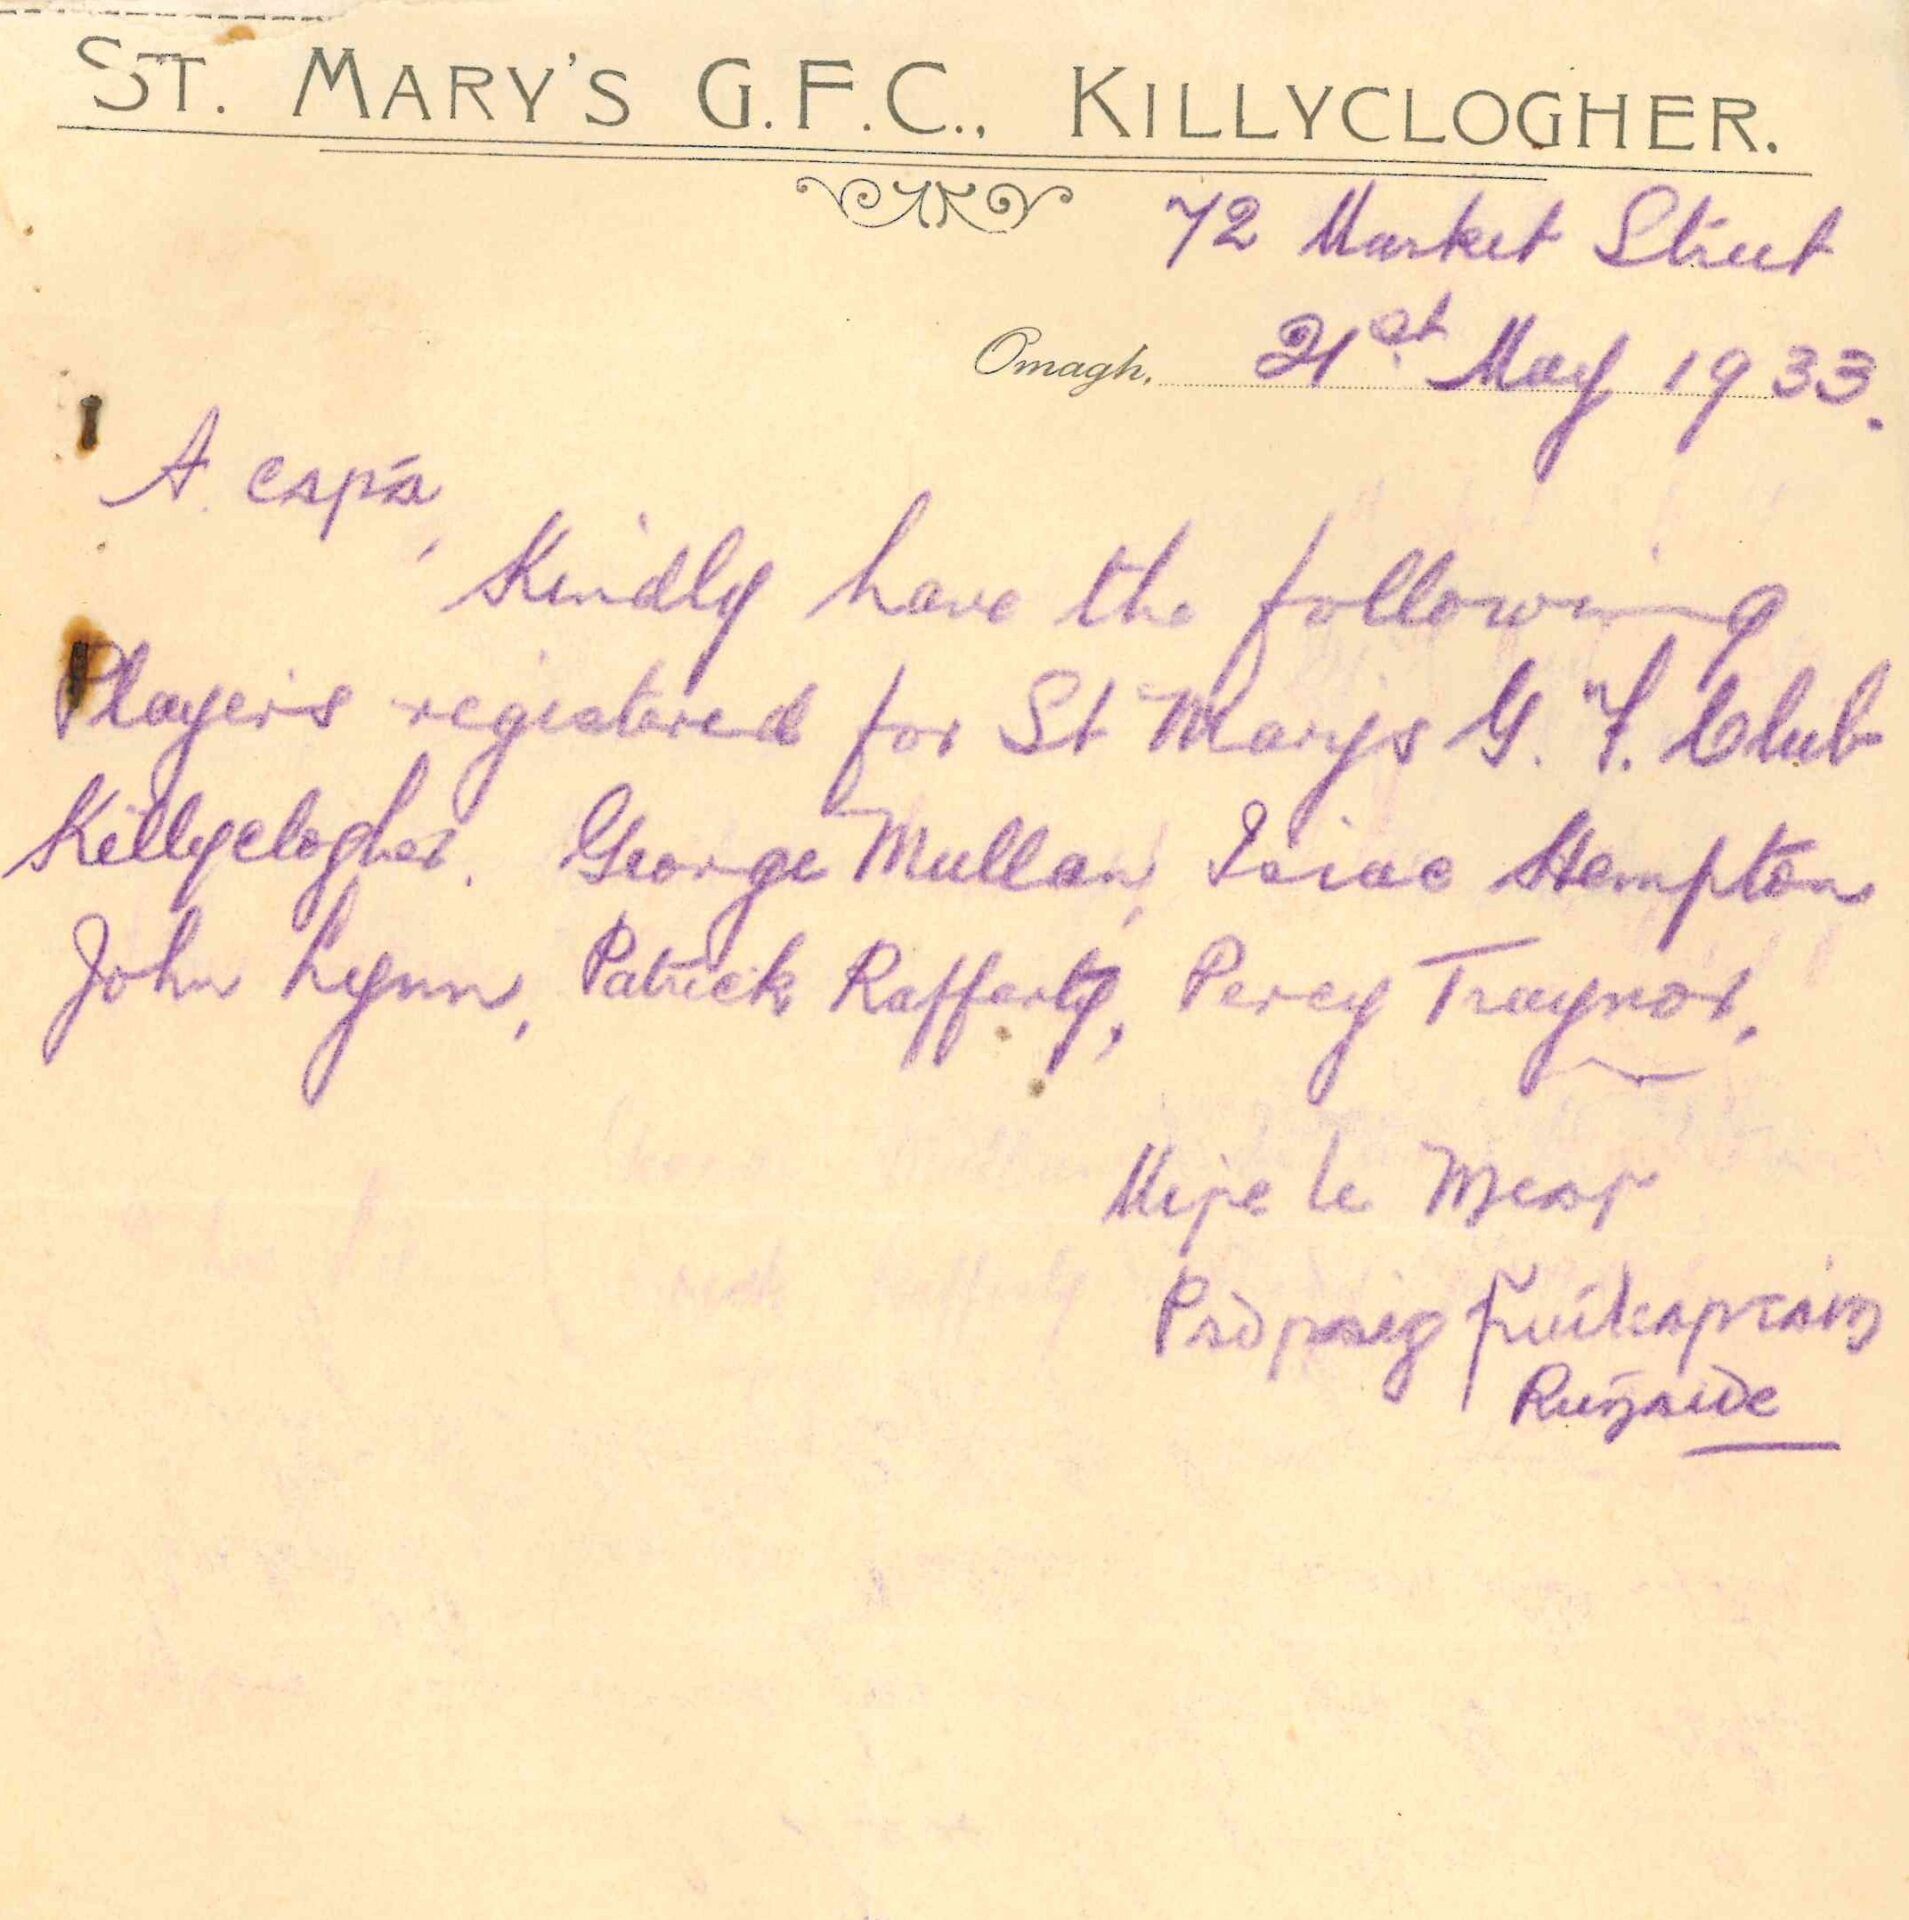 ST. MARY'S G.F.C., KILLYCLOGHER.
72 Market Street
Omagh, 21st May 1933.
A cara,
Kindly have the following
Players registered for St Marys G. F. Club
Killyclogher. George Mullan, Isiac Hempton
John Lynn, Patrick Rafferty, Percy Traynor.
Mise le Meas
Pádraig
Rúnaide